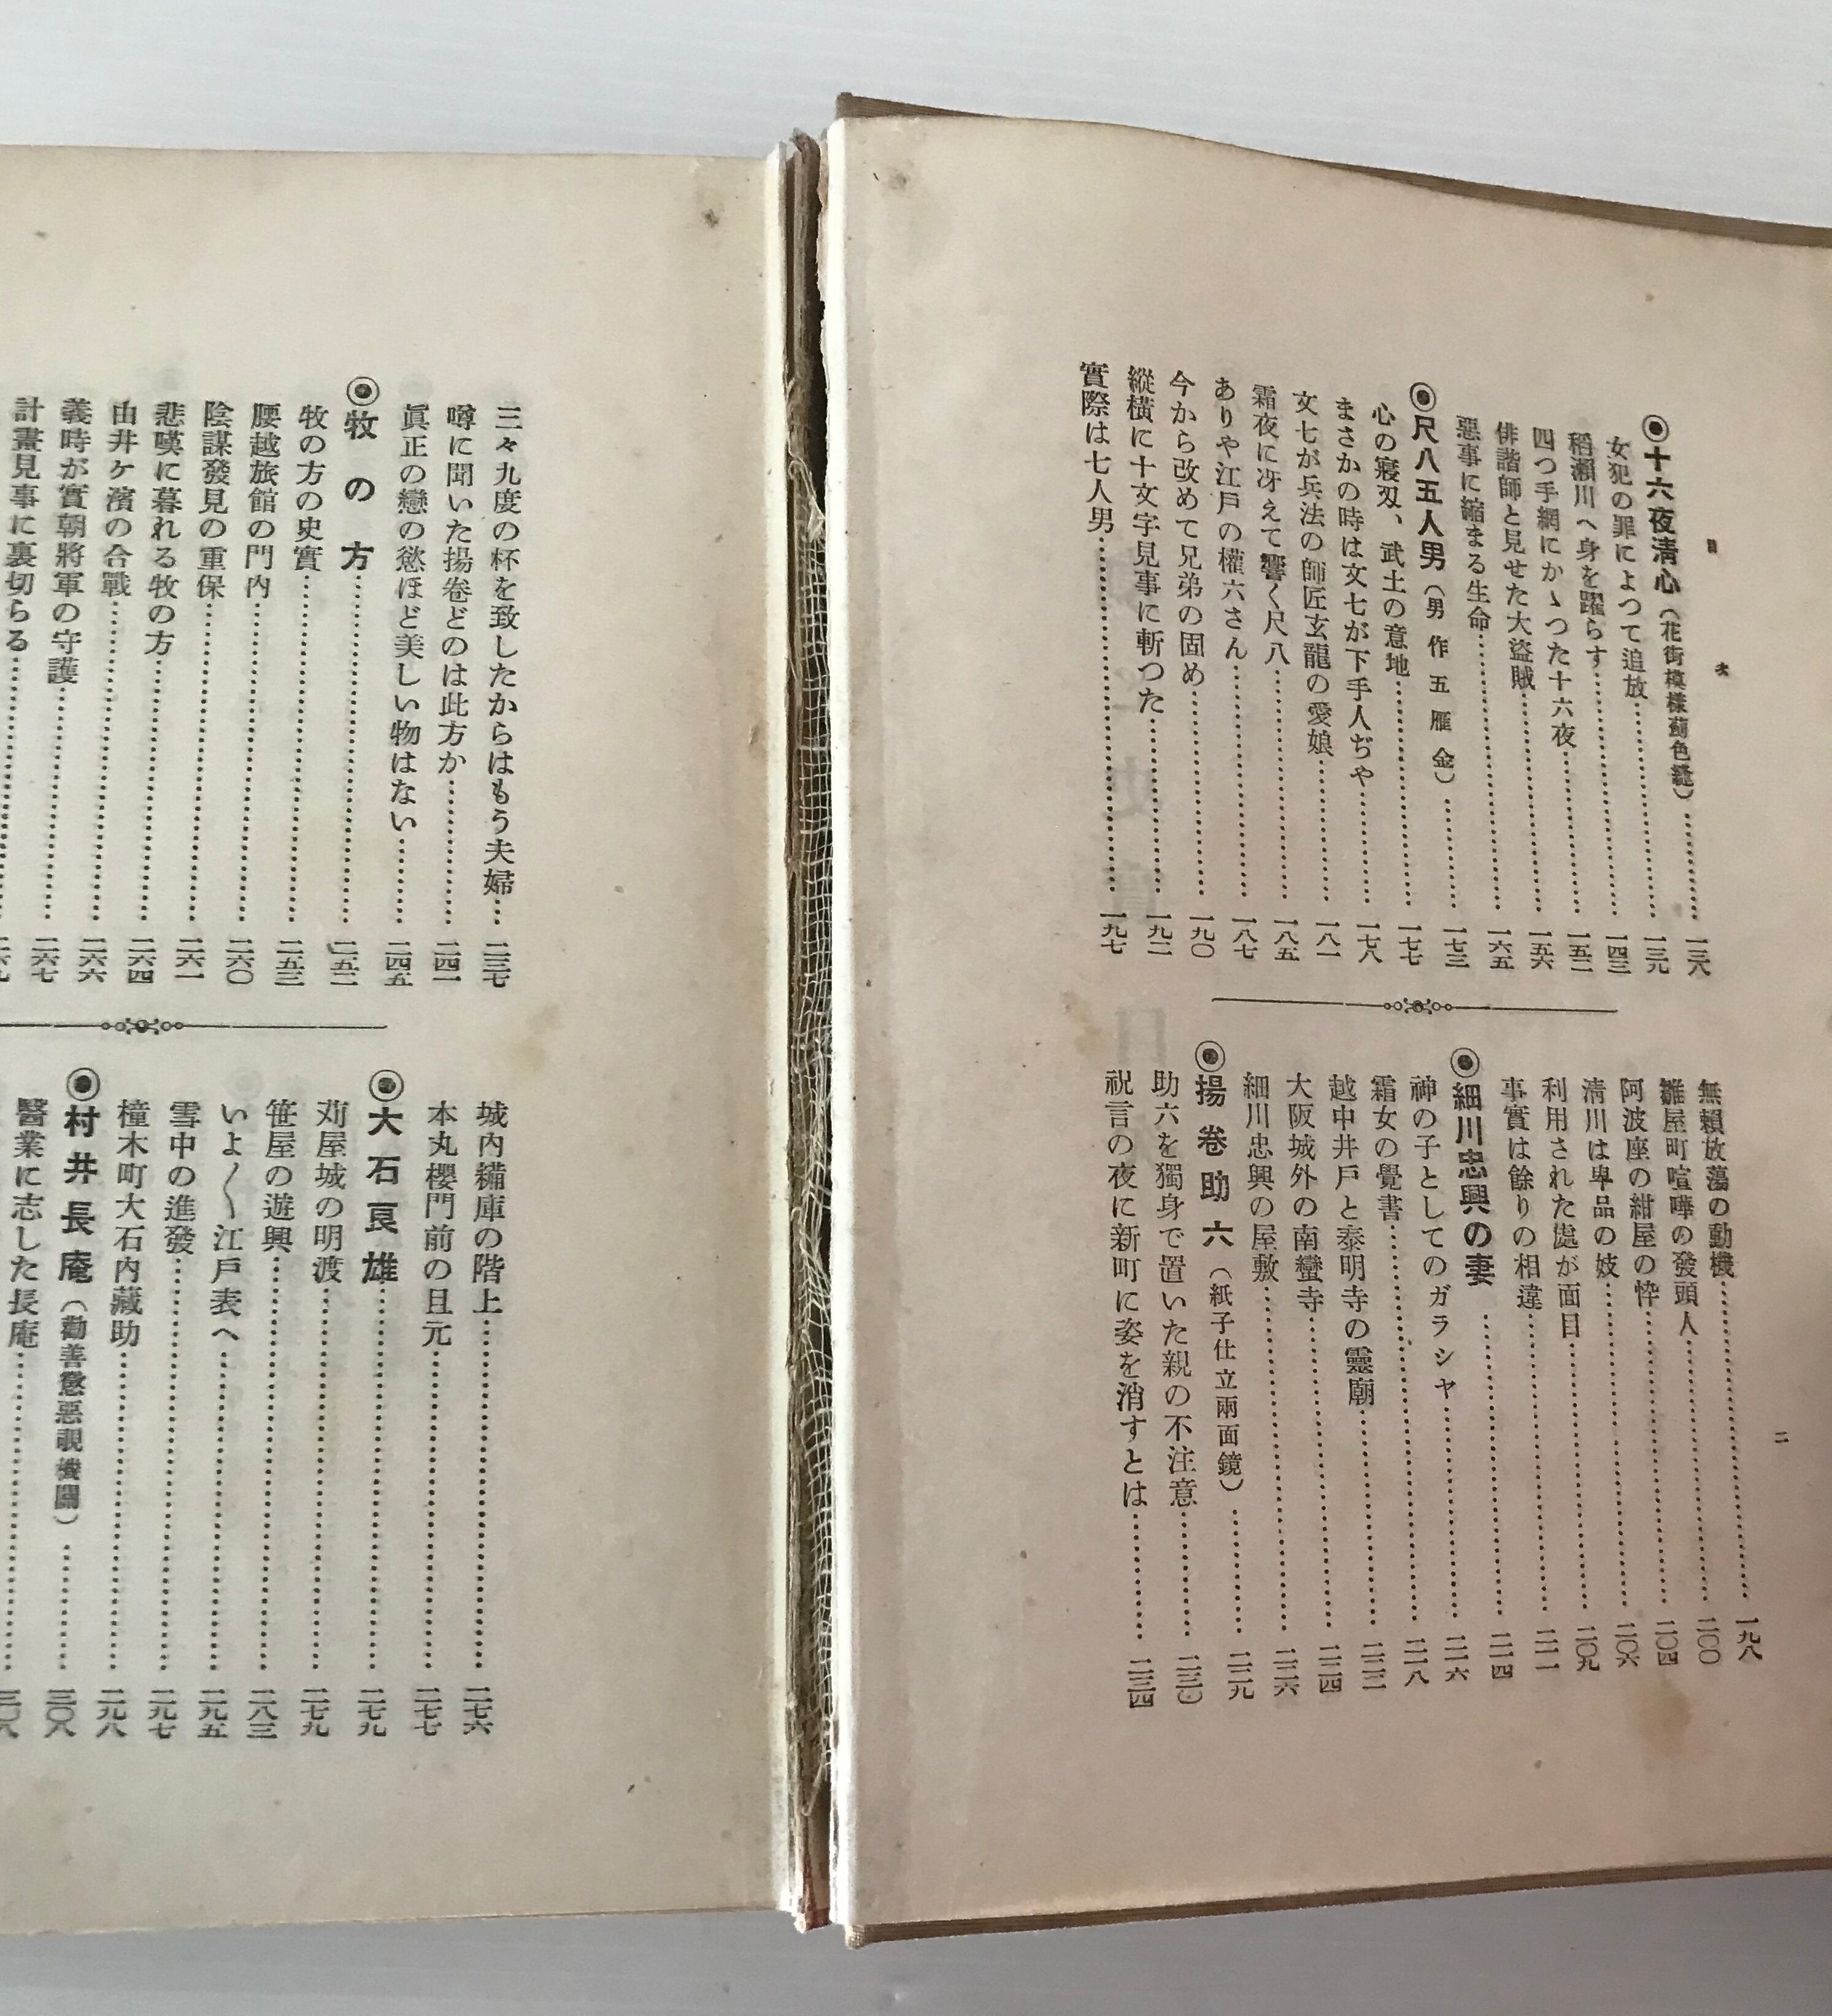 目次
◉十六夜淸心(花街模樣薊色縫)……一三八
女犯の罪によつて追放……一三九
稻瀨川へ身を躍らす……一四三
四つ手網にかゝつた十六夜……一五二
俳諧師と見せた大盜賊……一五六
惡事に縮まる生命……一六五
◉尺八五人男(男作五雁金)……一七三
心の寢刄、武士の意地……一七七
まさかの時は文七が下手人ぢや……一七八
文七が兵法の師匠玄龍の愛娘……一八一
霜夜に冴えて響く尺八……一八五
ありや江戶の權六さん……一八七
今から改めて兄弟の固め……一九〇
縱橫に十文字見事に斬つた……一九二
實際は七人男……一九七
二
無賴放蕩の動機……一九八
雛屋町喧嘩の發頭人……二〇〇
阿波座の紺屋の悴……二〇四
淸川は卑品の妓……二〇六
利用された處が面目……二〇九
事實は餘りの相違……二一一
◉細川忠興の妻……二一四
神の子としてのガラシヤ……二一六
霜女の覺書……二一八
越中井戶と泰明寺の靈廟……二二二
大阪城外の南蠻寺……二二四
細川忠興の屋敷……二二六
◉揚卷助六(紙子仕立兩面鏡)……二二九
助六を獨身で置いた親の不注意……二三〇
祝言の夜に新町に姿を消すとは……二三四
三々九度の杯を致したからはもう夫婦……二三七
噂に聞いた揚卷どのは此方か……二四一
眞正の戀の慾ほど美しい物はない……二四五
◉牧の方……二五二
牧の方の史實……二五三
腰越旅館の門內……二六〇
陰謀發見の重保……二六一
悲嘆に暮れる牧の方……二六四
由井ケ濱の合戰……二六六
義時が實朝將軍の守護……二六七
計畫見事に裏切らる……二六九
城內糒庫の階上……二七六
本丸櫻門前の且元……二七七
◉大石良雄……二七九
苅屋城の明渡……二七九
笹屋の遊興……二八三
いよ〱江戶表へ……二九五
雪中の進發……二九七
橦木町大石內藏助……二九八
◉村井長庵(勸善懲惡覗機關)……三〇八
醫業に志した長庵……三〇八